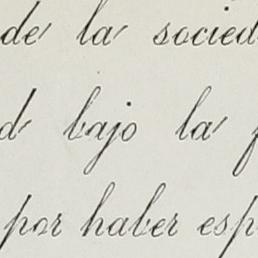 de la socied
d bajo la f
por haber esp